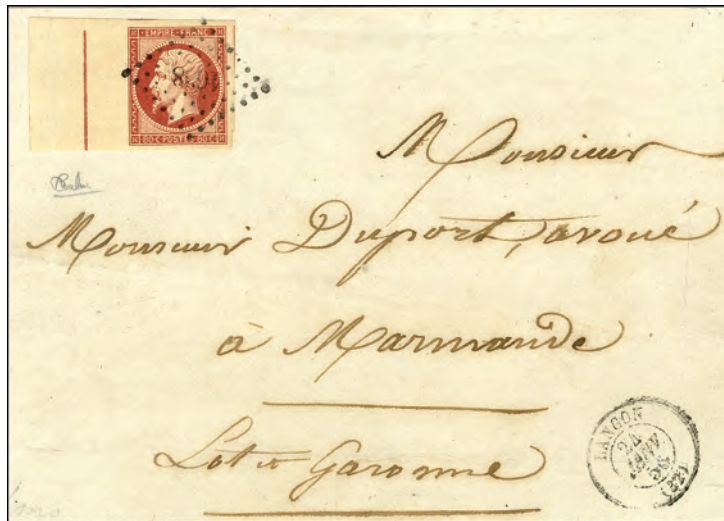 EMPIRE FRANC
80·C POSTES 80·C
Monsieur
Monsieur Duport, avoué
à Marmande
Lot et Garonne
LANGON
24
JANV
(32)